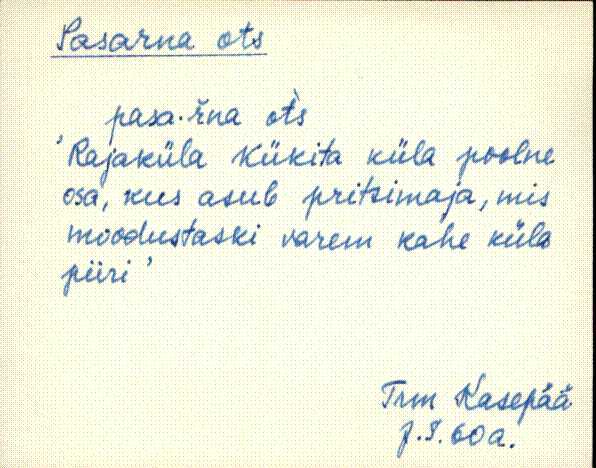 Pasarna ots
pasa·rna ot̀s
'Rajaküla Kükita küla poolne
osa, kus asub pritsimaja, mis
moodustaski varem kahe küla
piiri'
Trm Kasepää
J.S. 60a.